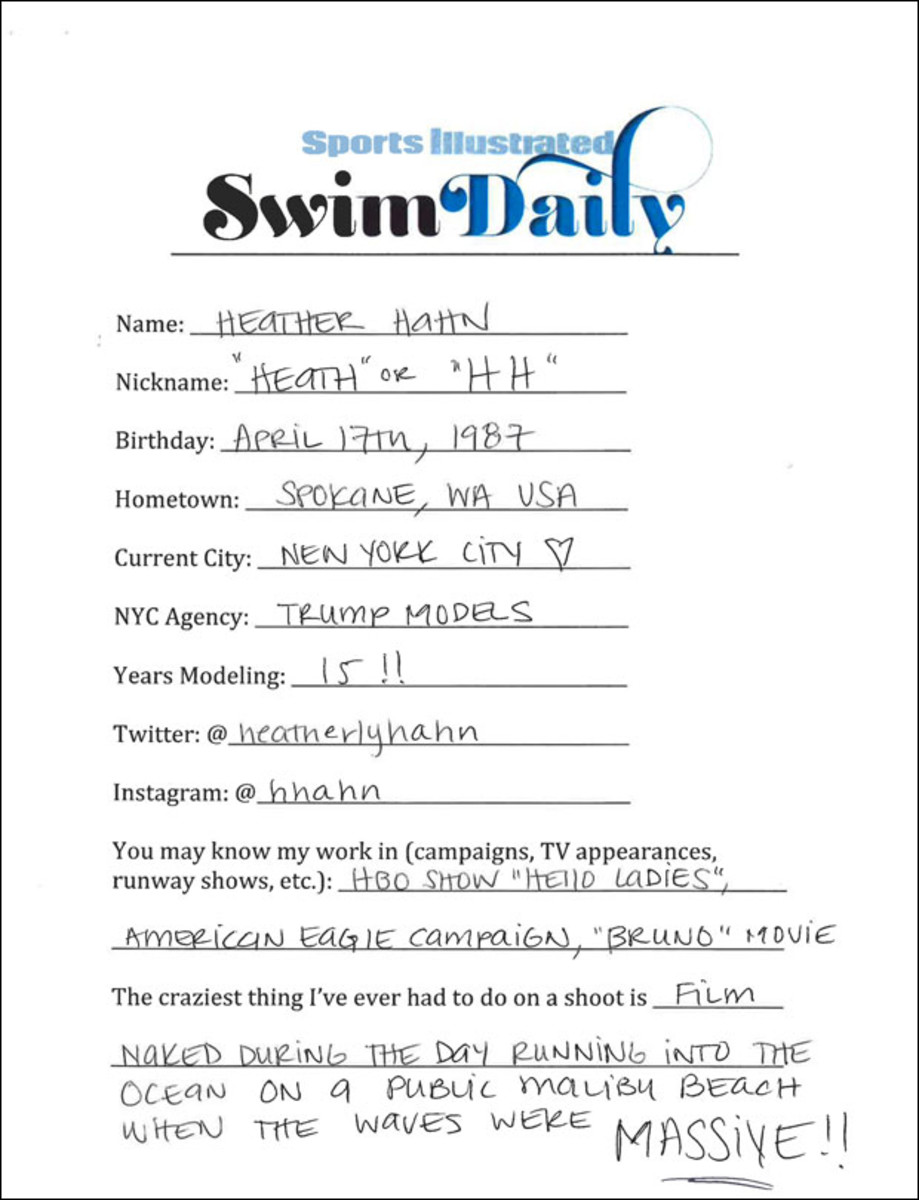 Sports Illustrated
SwimDaily
Name: HEATHER HAHN
Nickname: "HEATH" OR "HH"
Birthday: APRIL 17TH, 1987
Hometown: SPOKANE, WA USA
Current City: NEW YORK CITY ♡
NYC Agency: TRUMP MODELS
Years Modeling: 15 !!
Twitter: @ heatherlyhahn
Instagram: @ hhahn
You may know my work in (campaigns, TV appearances,
runway shows, etc.): HBO SHOW "HELLO LADIES",
AMERICAN EAGLE CAMPAIGN, "BRUNO" MOVIE
The craziest thing I've ever had to do on a shoot is FILM
NAKED DURING THE DAY RUNNING INTO THE
OCEAN ON A PUBLIC MALIBU BEACH
WHEN THE WAVES WERE MASSIVE!!